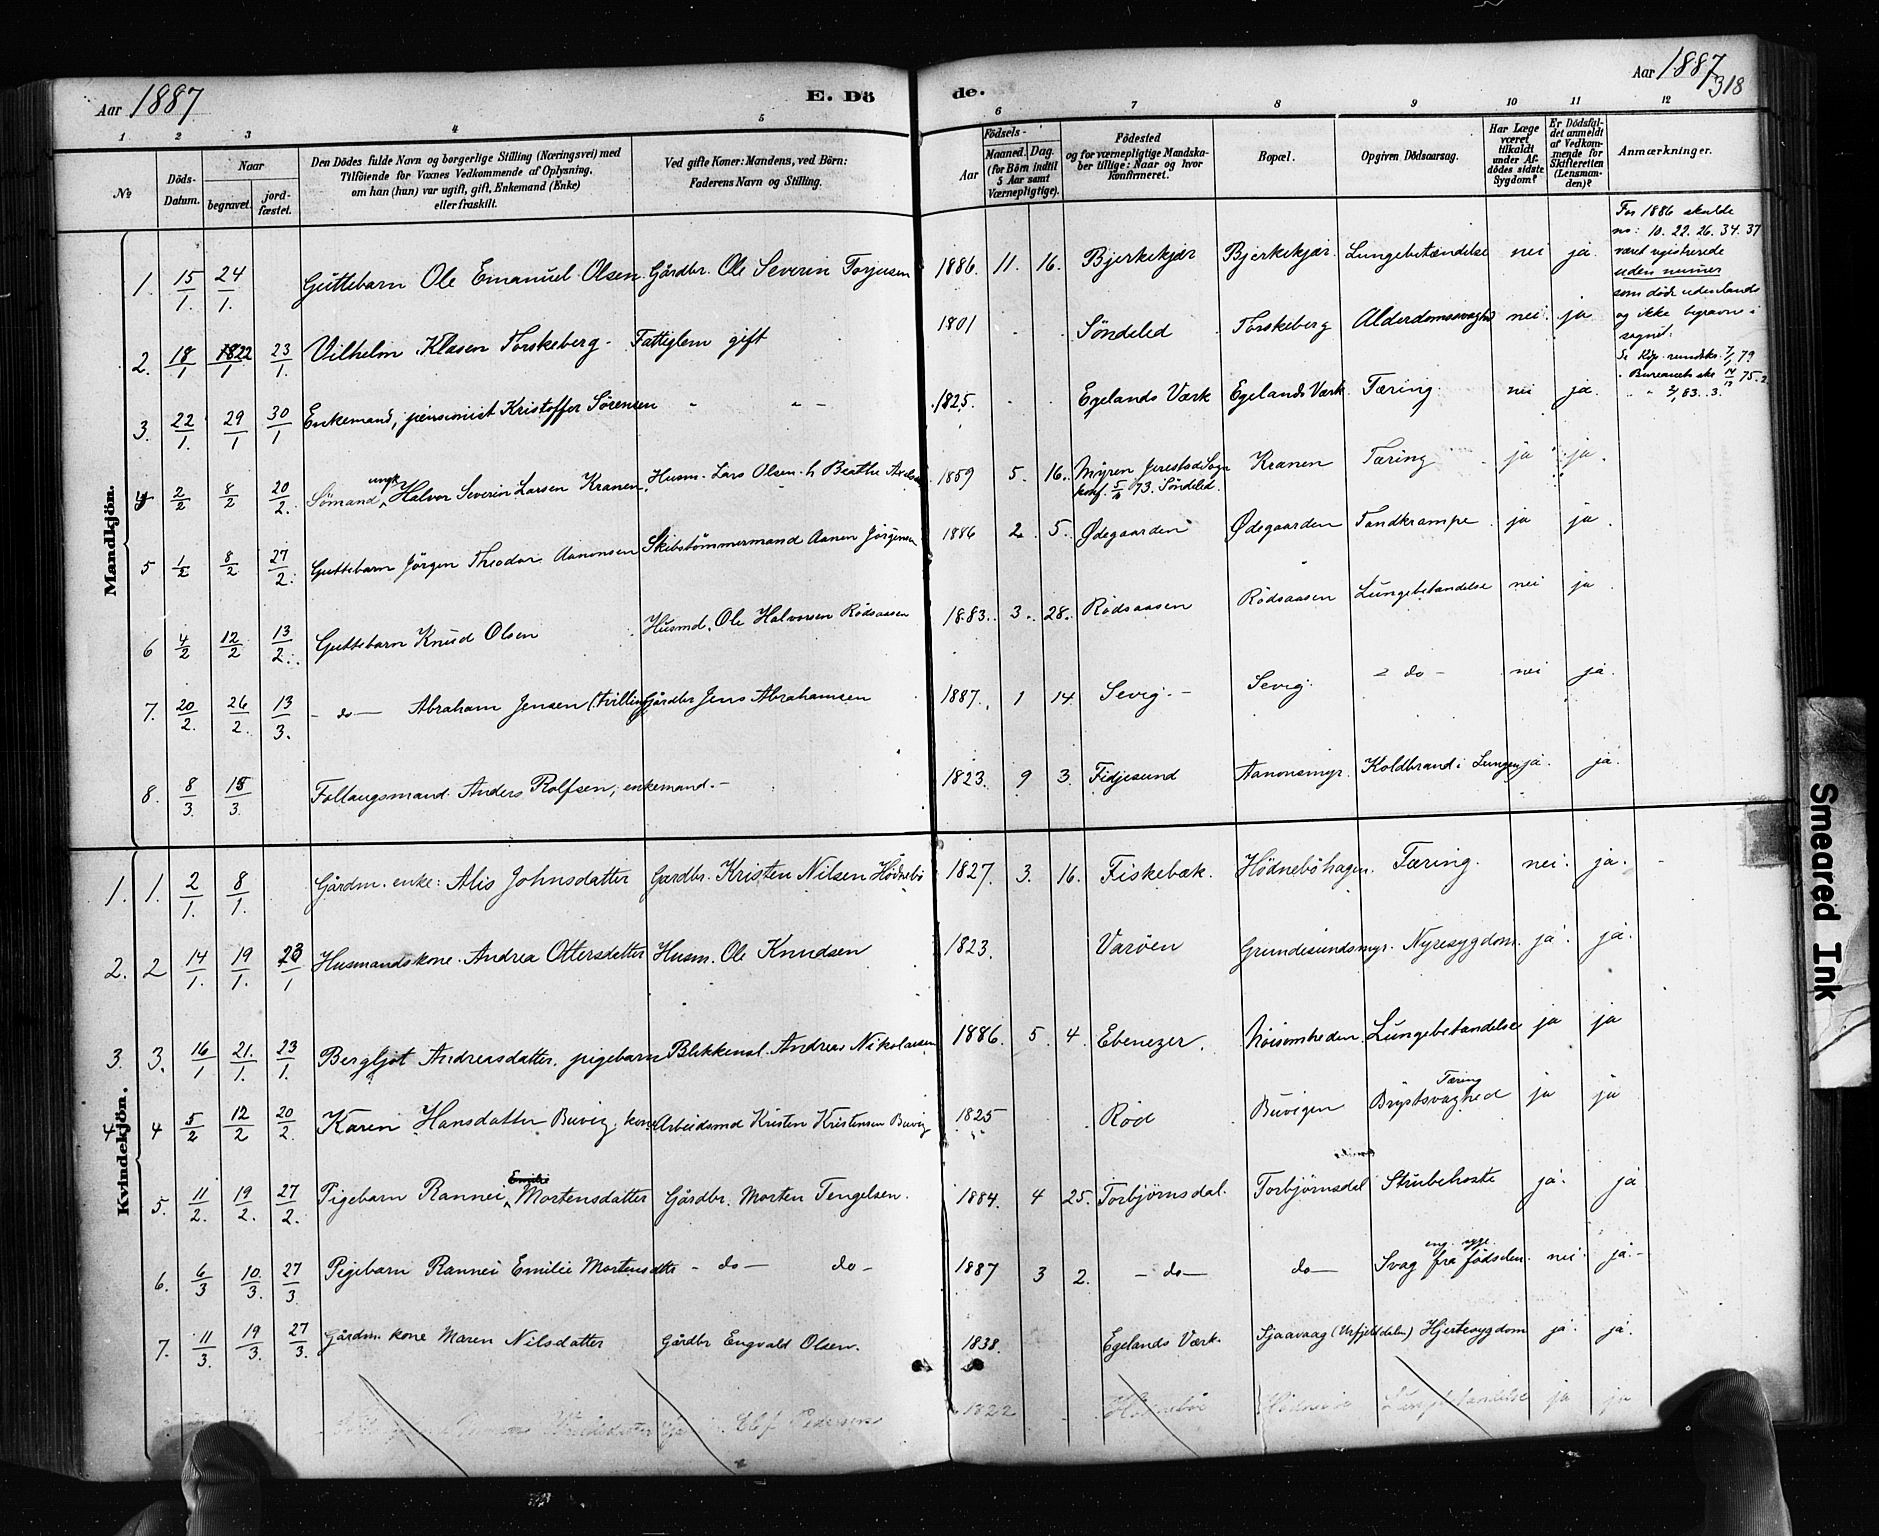 Aar 1887
E. Dö de.
Aar 1887
318
1 2 3 4 5 6 7 8 9 10 11 12
№
Döds-Datum.
Naar
begravet.
jord-fæstet.
Den Dödes fulde Navn og borgerlige Stilling (Næringsvei) med
Tilföiende for Voxnes Vedkommende af Oplysning,
om han (hun) var ugift, gift, Enkemand (Enke)
eller fraskilt.
Ved gifte Koner: Mandens, ved Börn:
Faderens Navn og Stilling.
Födsels-
Aar
Maaned. Dag.
(for Börn indtil
5 Aar samt
Værnepligtige).
Födested
og for værnepligtige Mandska-
ber tillige: Naar og hvor
Konfirmeret.
Bopæl.
Opgiven Dödsaarsag.
Har Læge
været
tilkaldt
under Af-
dödes sidste
Sygdom?
Er Dödsfal-
det anmeldt
af Vedkom-
mende for
Skifteretten
(Lensman-
den)?
Anmærkninger.
Mandkjön.
1. 15/1. 24/1. Guttebarn Ole Emanuel Olsen Gårdbr. Ole Severin Torjusen 1886. 11. 16. Bjerkekjær Bjerkekjær. Lungebetændelse nei ja.
For 1886 skulde
no: 10. 22. 26. 34. 37
været registrerede
uden numer
som döde udenlands
og ikke begravne i
sognet.
2. 18/1 22/1 23/1. Vilhelm Klasen Torskeberg. Fattiglem gift 1801 Söndeled Torskeberg Alderdomssvaghed nei. ja
3. 22/1. 29/1 30/1 Enkemand, pensionist Kristoffer Sörensen 1825. Egelands Værk Egelands Værk Tæring. nei ja.
4 2/2 8/2 20/2. Sömand, ungk. Halvor Severin Larsen Kranen Husm. Lars Olsen. h Beathe 1859 5. 16. Myren Jerestad Sogn konf. 73. Söndeled. Kranen Tæring ja ja.
5 1/2 8/2 27/2. Guttebarn Jörgen Theodor Aanonsen Skibstömmermand Aanon Jörgensen 1886 2. 5. Ødegaarden Ødegaarden Tandkrampe ja ja.
6 4/2 12/2 13/2. Guttebarn Knud Olsen Husmd. Ole Halvorsen Rödsaasen 1883. 3. 28. Rödsaasen Rödsaasen Lungebetandelse nei ja
7. 20/2. 26/2. 13/3. - do - Abraham Jensen (tvilling) Gårdbr Jens Abrahamsen 1887. 1 14. Sevig. - Sevig. - do - nei ja.
8. 8/3. 15/3. Follaugsmand. Anders Rolfsen, enkemand. - 1823. 9 3. Fidjesund Aanonsmyr. Koldbrand i Lungen ja. ja.
Kvindekjön.
1. 1. 2/1. 8/1. Gårdm. enke: Alis Johnsdatter Gardbr. Kristen Nilsen Hödnebö 1827. 3. 16. Fiskebæk. Hödneböhagen. Tæring. nei. ja.
2. 2 14/1. 19/1. 23/1 Husmandskone. Andrea Ottersdatter Husm. Ole Knudsen 1823. Varöen Grundesundsmyr. Nyresygdom. ja. ja.
3. 3. 16/1 21/1. 23/1. Bergljot Andreasdatter. pigebarn Blikkensl. Andreas Nikolaisen 1886. 5. 4. Ebenezer. Nöisomheden Lungebetandelse ja ja
4. 4 5/2 12/2 20/2. Karen Hansdatter Buvig, kone Arbeidsmd Kristen Kristensen Buvig 1825 Röd Buvigen Tæring Brystsvaghed ja ja
5. 11/2. 19/2. 27/2. Pigebarn Rannei Emilie Mortensdatter Gårdbr. Morten Tengelsen. 1884. 4 25. Torbjörnsdal. Torbjörnsdal Strubehoste ja. ja
6. 6/3 10/3. 27/3 Pigebarn Rannei Emilie Mortensdtr - do - do - 1887 3 2. - do - do - Svag fra födselen. nei. ja. -
7. 11/3. 19/3. 27/3. Gårdm. kone Maren Nilsdatter Gårdbr Engvald Olsen. 1838. Egelands Værk. Sjaavaag (Urfjelddalen) Hjertesygdom ja. ja.
1822 Hödnebö Hödnebö Lungebetandelse ja ja
Smeared Ink